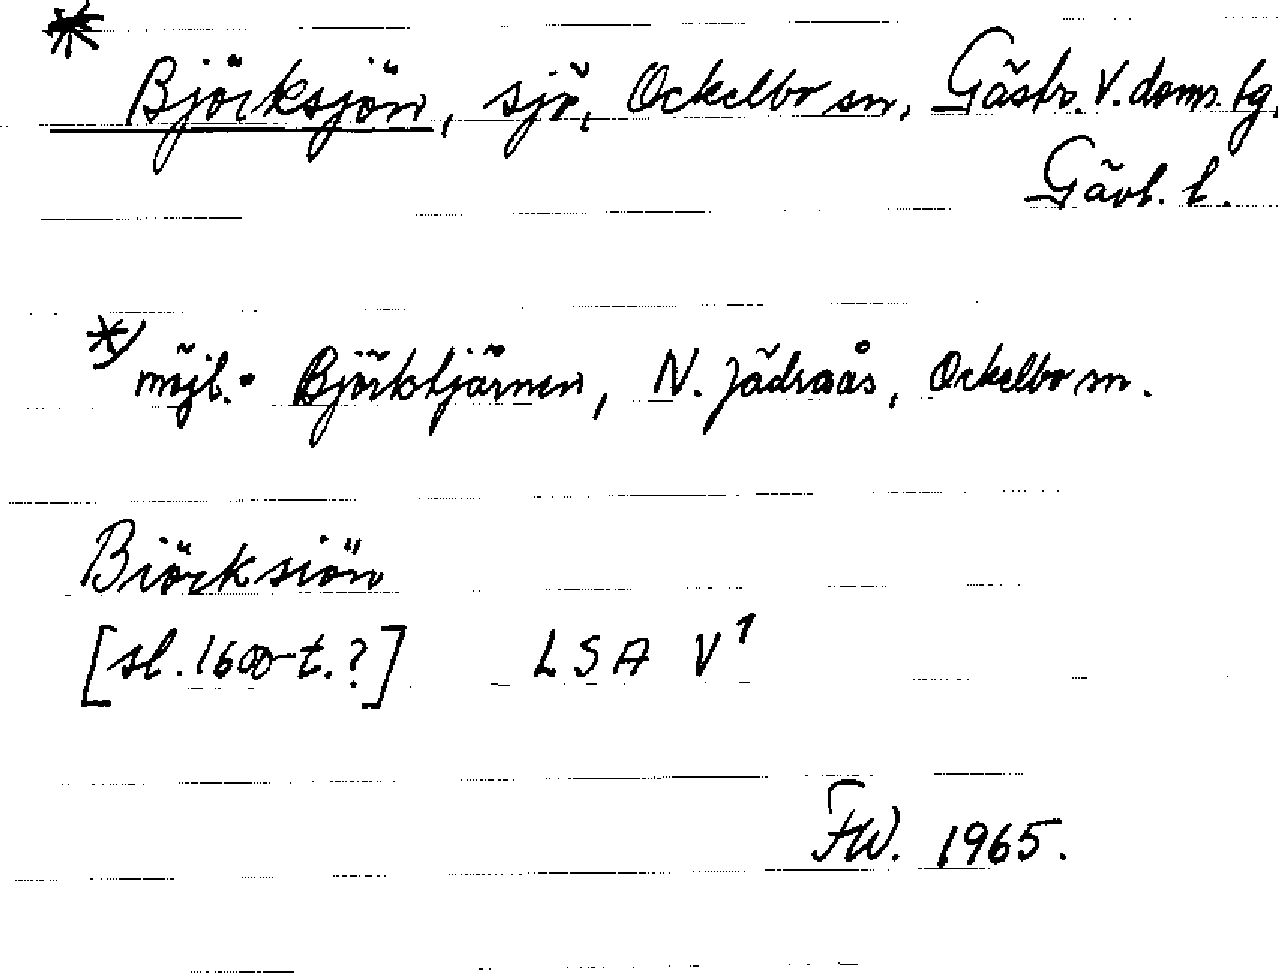 * Björcksjön, sjö, Ockelbo sn, Gästr. V. doms. tg,
Gävl. l.
*) möjl. Björktjärnen, N. Jädraås, Ockelbo sn.
Biörcksiön
[sl. 1600-t.?] LSA V1
FW. 1965.